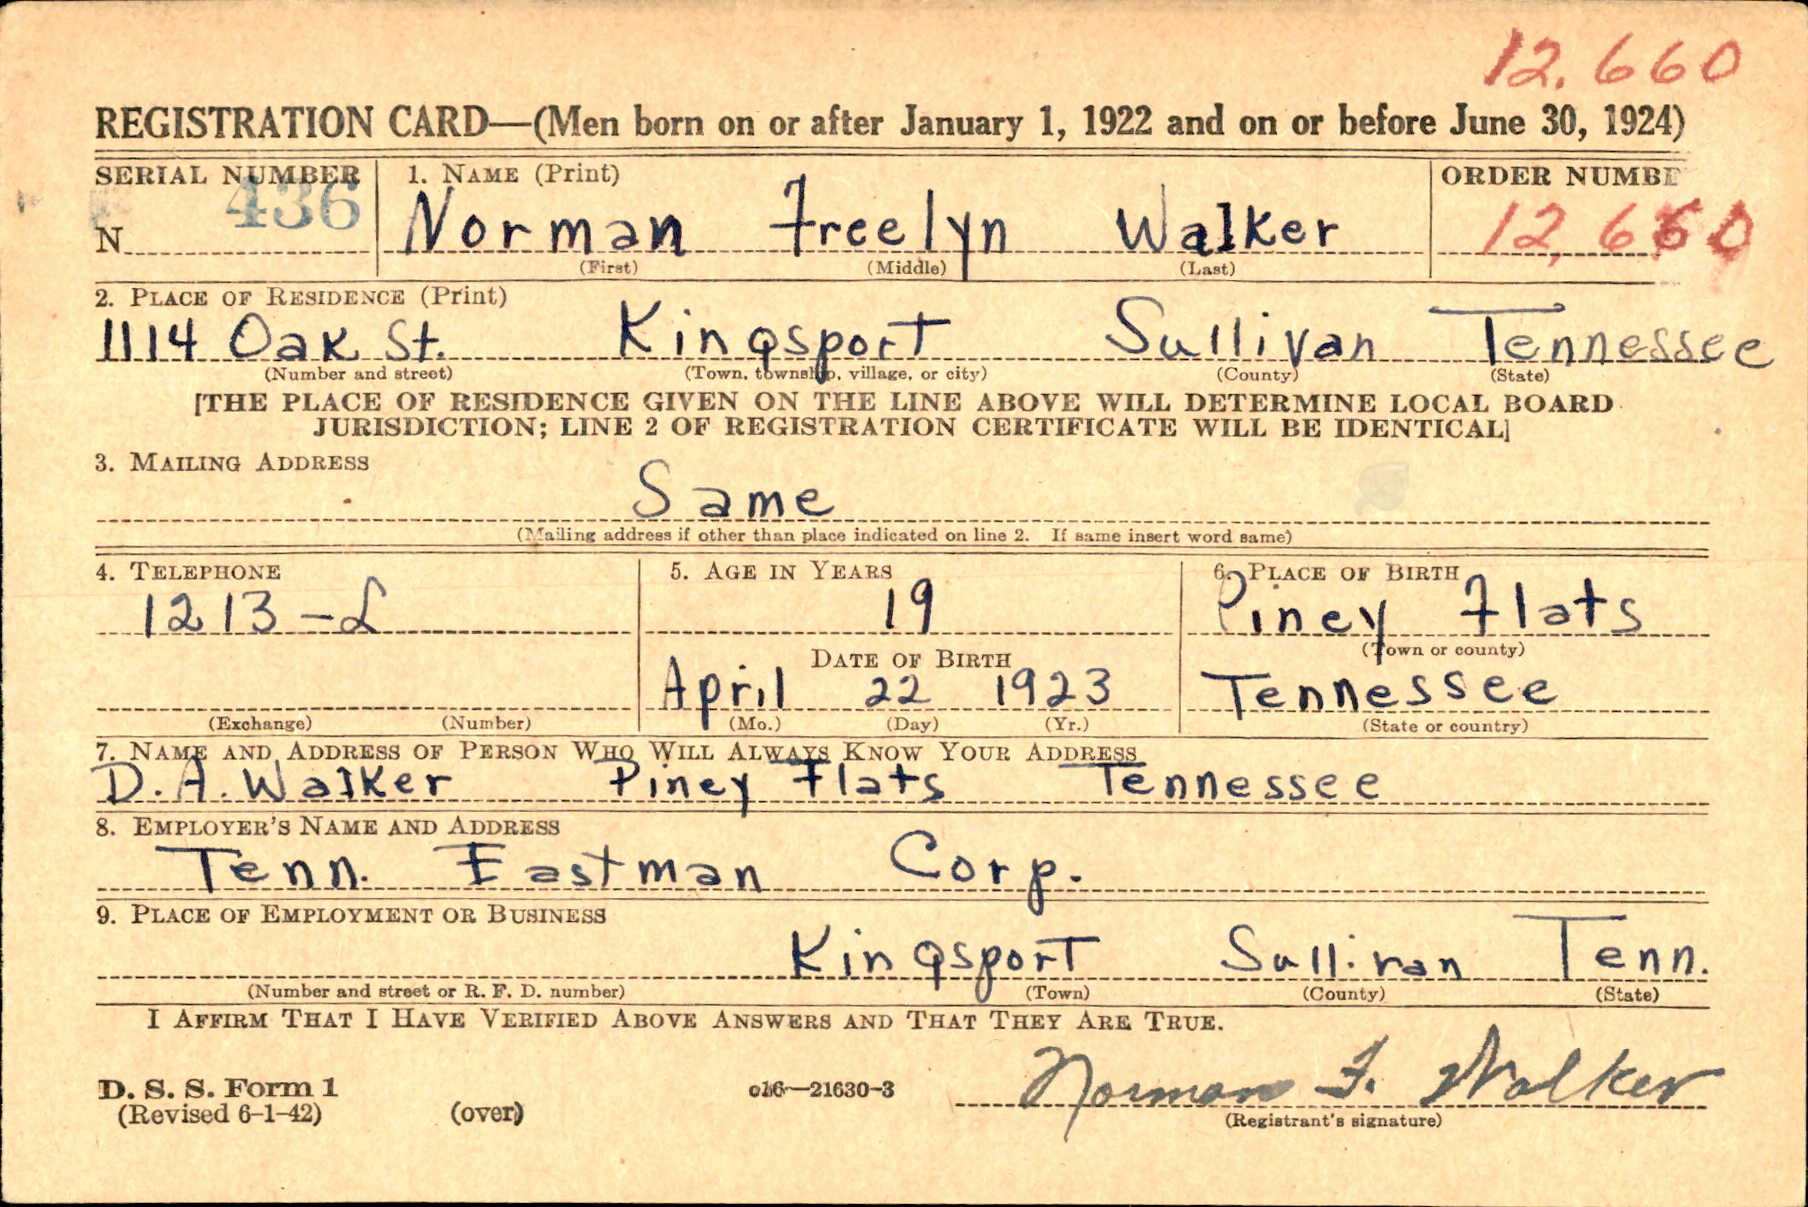 12.660
REGISTRATION CARD—(Men born on or after January 1, 1922 and on or before June 30, 1924)
SERIAL NUMBER 1. NAME (Print) ORDER NUMBE
N 436 Norman Freelyn Walker 12,660
(First) (Middle) (Last)
2. PLACE OF RESIDENCE (Print)
1114 Oak St. Kingsport Sullivan Tennessee
(Number and street) (Town, township, village, or city) (County) (State)
[THE PLACE OF RESIDENCE GIVEN ON THE LINE ABOVE WILL DETERMINE LOCAL BOARD
JURISDICTION; LINE 2 OF REGISTRATION CERTIFICATE WILL BE IDENTICAL]
3. MAILING ADDRESS
Same
(Mailing address if other than place indicated on line 2. If same insert word same)
4. TELEPHONE 5. AGE IN YEARS 6. PLACE OF BIRTH
1213-L 19 Piney Flats
(Town or county)
DATE OF BIRTH
April 22 1923 Tennessee
(Exchange) (Number) (Mo.) (Day) (Yr.) (State or country)
7. NAME AND ADDRESS OF PERSON WHO WILL ALWAYS KNOW YOUR ADDRESS
D.A. Walker Piney Flats Tennessee
8. EMPLOYER'S NAME AND ADDRESS
Tenn. Eastman Corp.
9. PLACE OF EMPLOYMENT OR BUSINESS
Kingsport Sullivan Tenn.
(Number and street or R. F. D. number) (Town) (County) (State)
I AFFIRM THAT I HAVE VERIFIED ABOVE ANSWERS AND THAT THEY ARE TRUE.
D. S. S. Form 1
(Revised 6-1-42) (over) c16—21630-3 Norman F. Walker
(Registrant's signature)